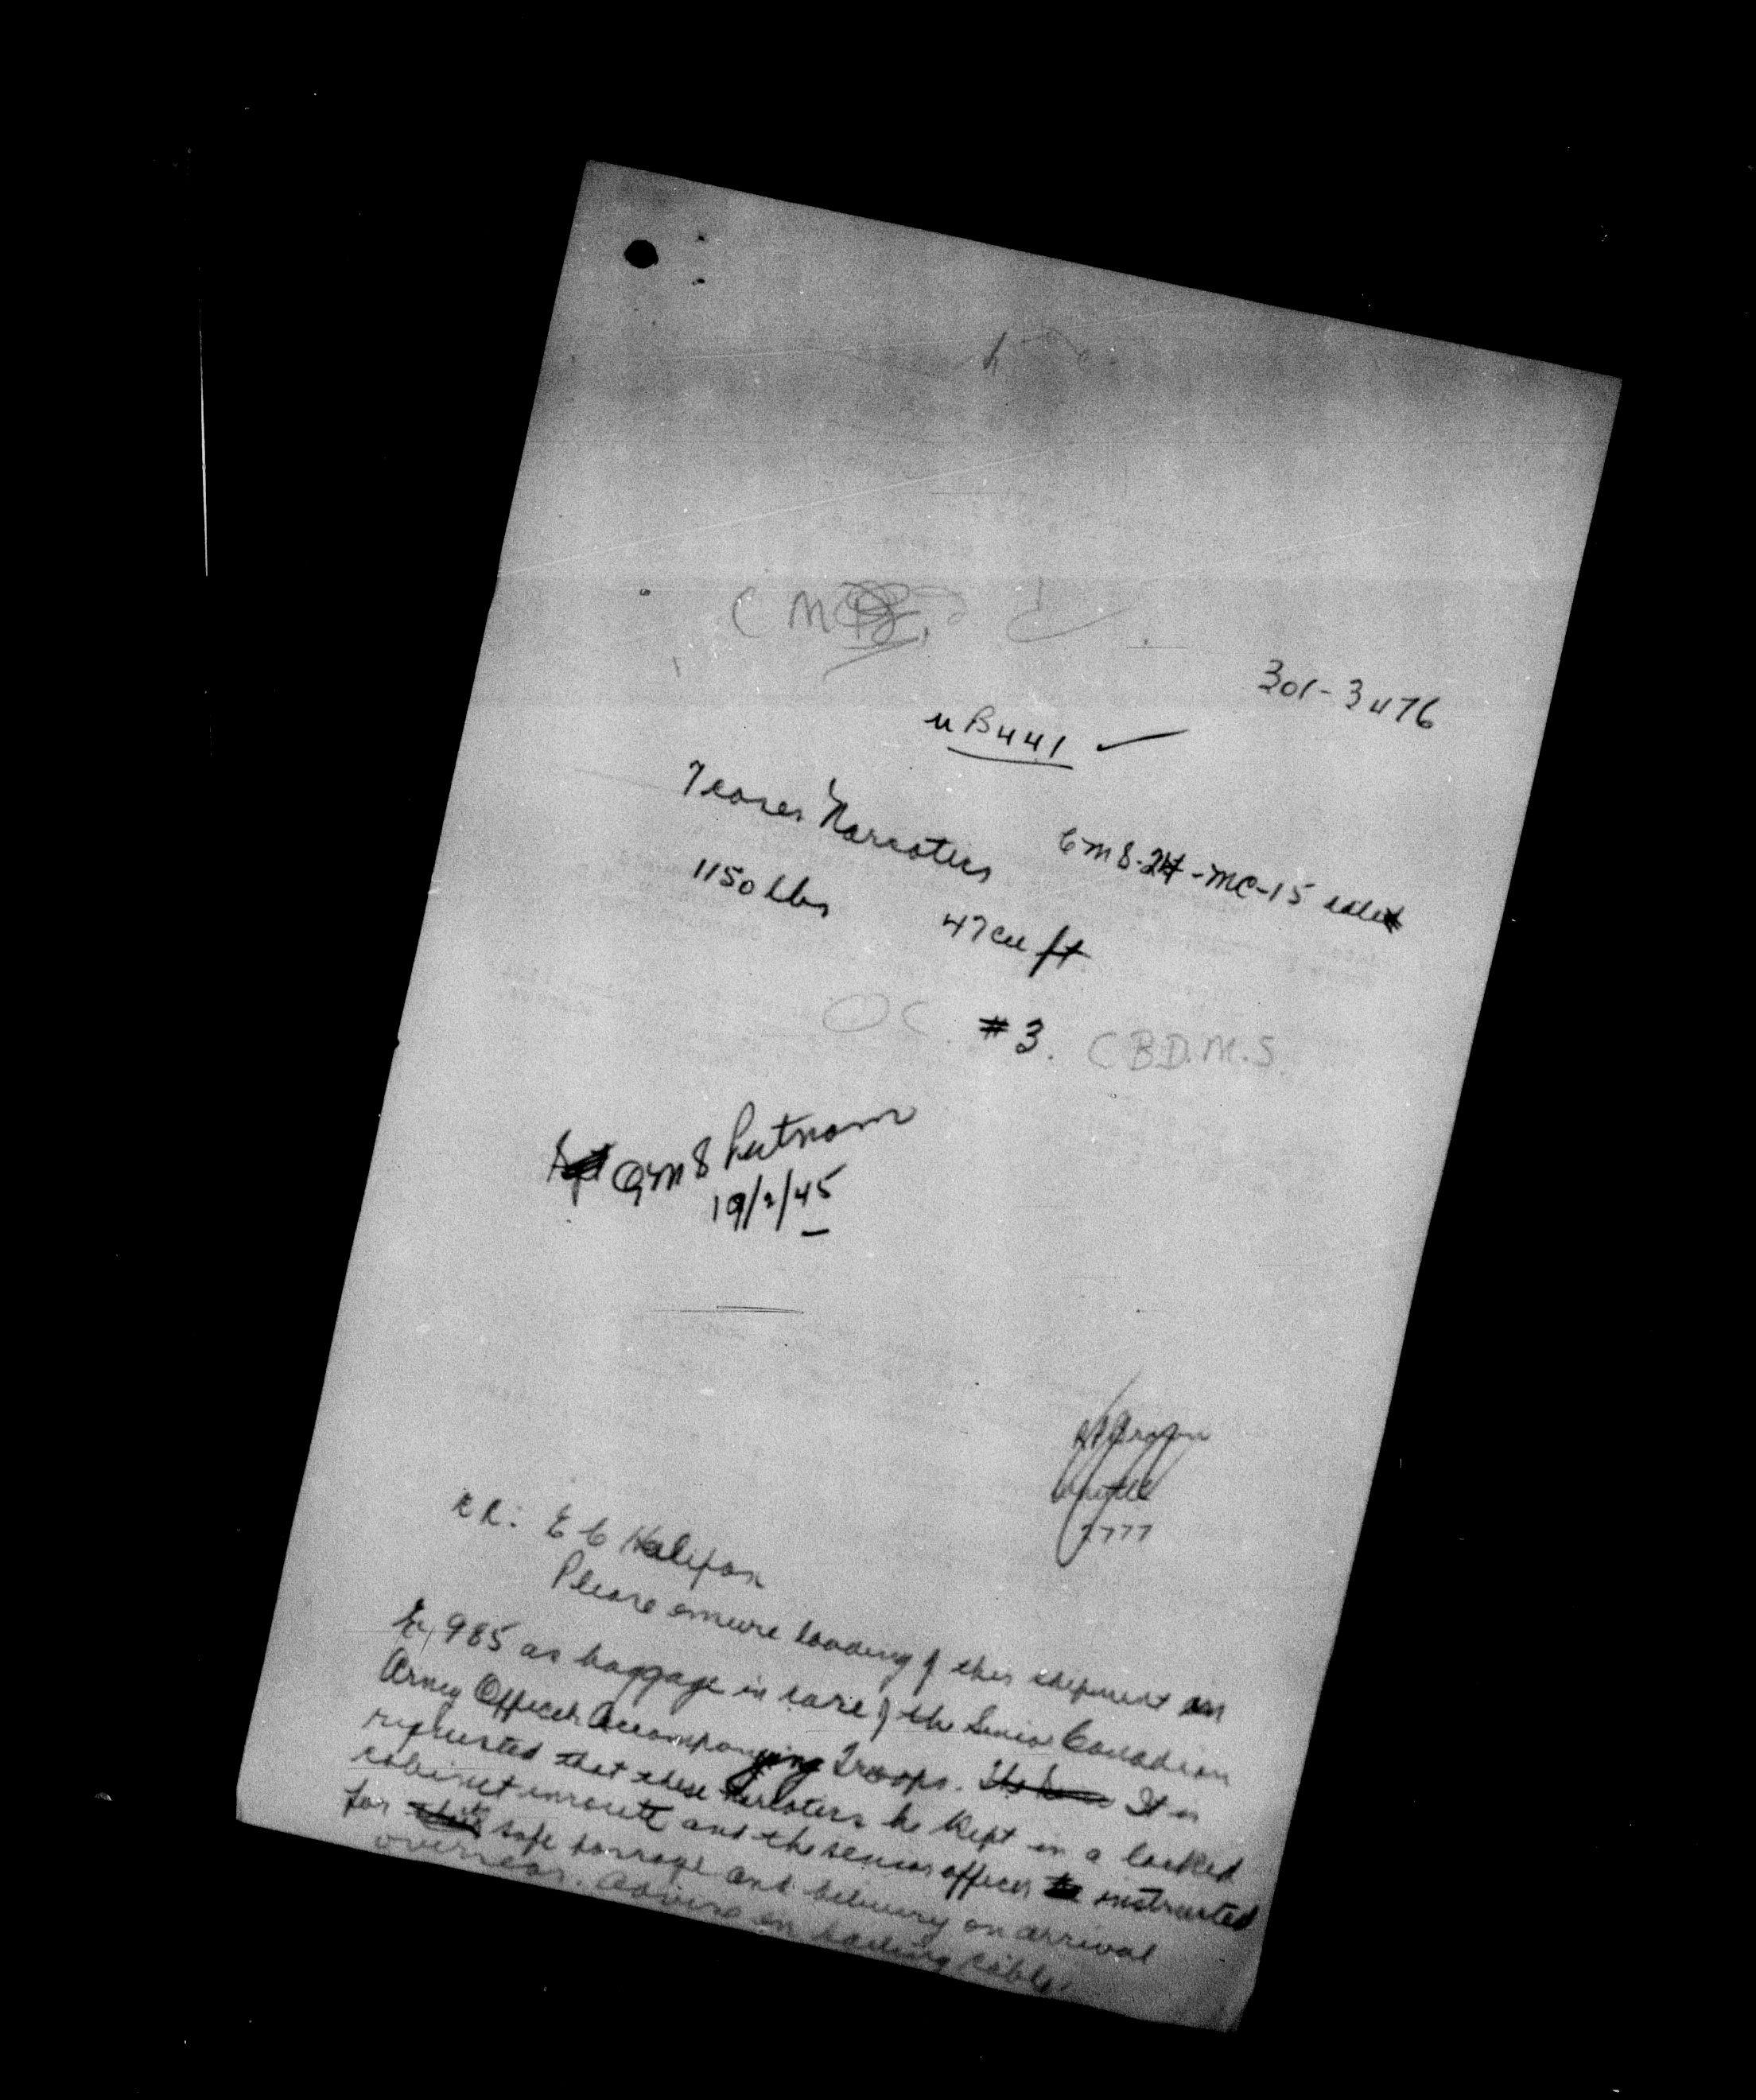 301-3476
UB441
7 cases Narcotics CMS-24-MC-15
1150 lbs 47 cu ft
OC #3. C.B.D.M.S.
QMS Putnam
19/2/45
2777
E C Halifax
Please ensure loading of this shipment on
985 as baggage in care of the Senior Canadian
Army Officer Accompanying Troops. It is
requested that these Narcotics be kept in a locked
cabinet enroute and the senior officer instructed
for safe storage and delivery on arrival
overseas. Advise in sailing cable.